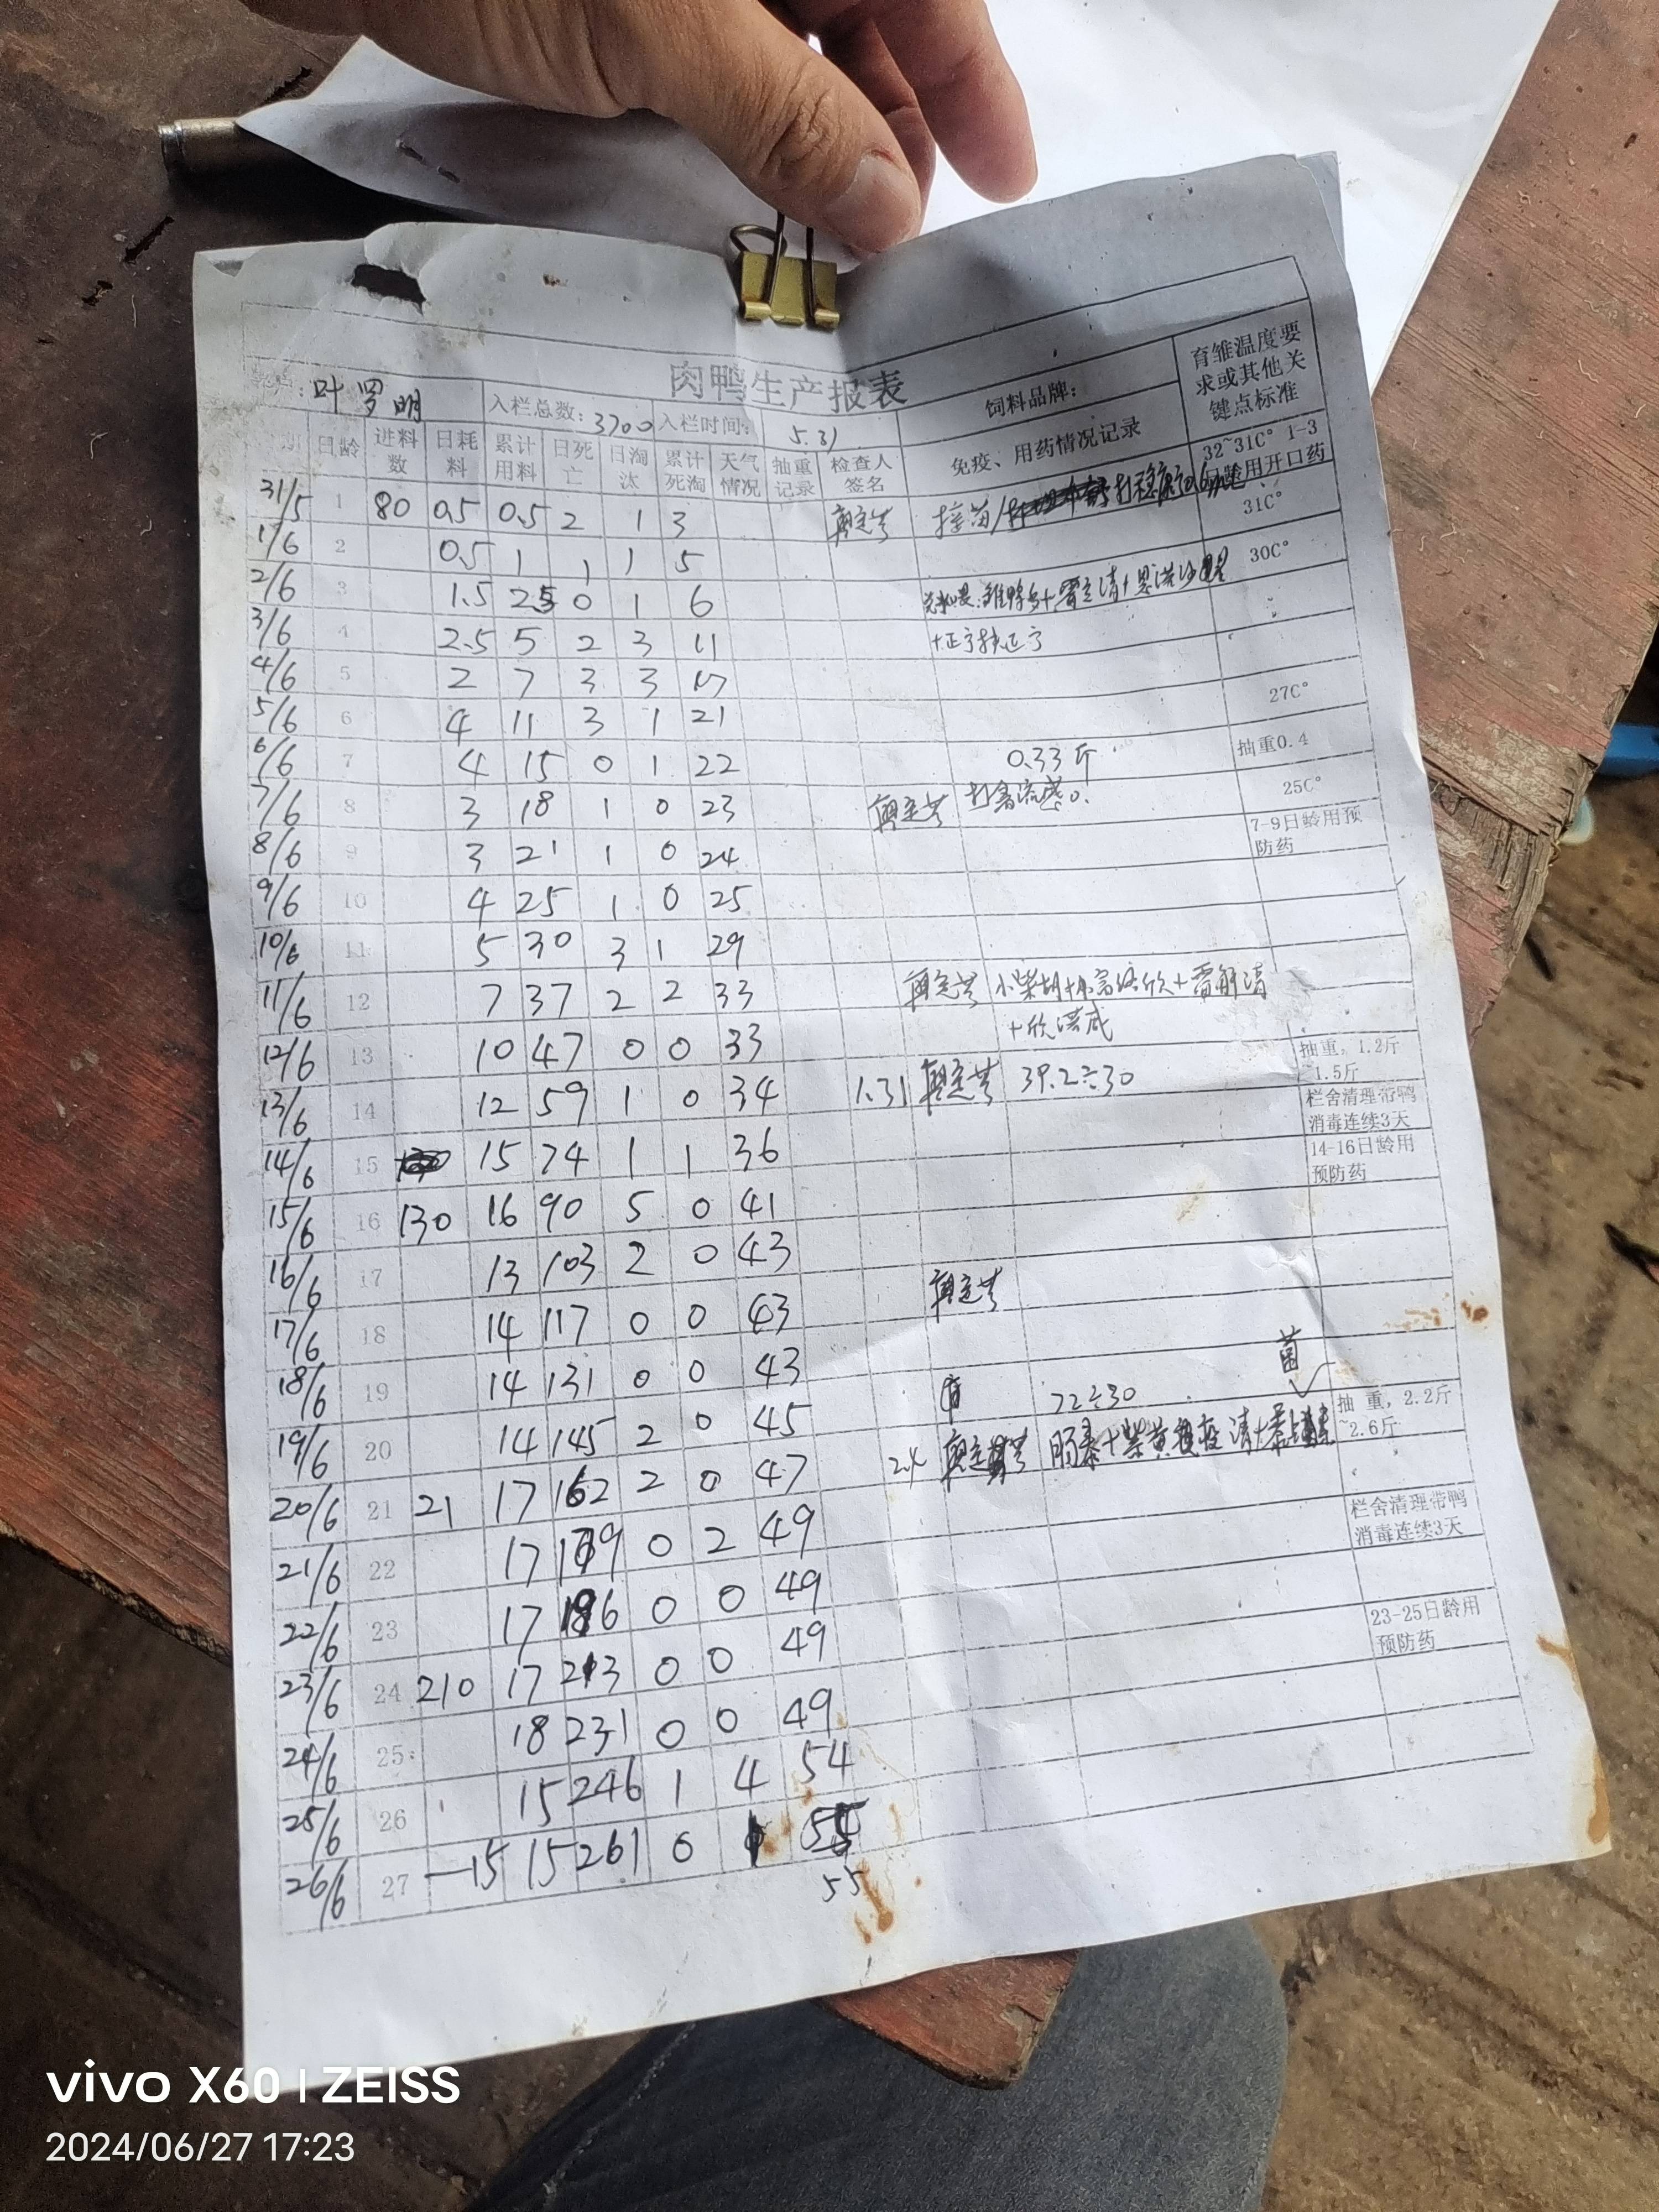 肉鸭生产报表
叶罗明 入栏总数: 3700 入栏时间: 5.31 饲料品牌: 育雏温度要求或其他关键点标准
日龄 进料数 日耗料 累计用料 日死亡 日淘汰 累计死淘 天气情况 抽重记录 检查人签名 免疫、用药情况记录 32~31C° 1-3日龄用开口药
31/5 1 80 0.5 0.5 2 1 3 接苗/ 31C°
1/6 2 0.5 1 1 1 5 30C°
2/6 3 1.5 2.5 0 1 6
3/6 4 2.5 5 2 3 11
4/6 5 2 7 3 3 17 27C°
5/6 6 4 11 3 1 21
6/6 7 4 15 0 1 22 0.33斤 抽重0.4
7/6 8 3 18 1 0 23 打禽流感 25C°
8/6 9 3 21 1 0 24 7-9日龄用预防药
9/6 10 4 25 1 0 25
10/6 11 5 30 3 1 29
11/6 12 7 37 2 2 33 小柴胡+
12/6 13 10 47 0 0 33
13/6 14 12 59 1 0 34 1.31 39.2÷30 抽重, 1.2斤~1.5斤
14/6 15 15 74 1 1 36 栏舍清理带鸭消毒连续3天
15/6 16 130 16 90 5 0 41 14-16日龄用预防药
16/6 17 13 103 2 0 43
17/6 18 14 117 0 0 43
18/6 19 14 131 0 0 43 菌
19/6 20 14 145 2 0 45 72÷30
20/6 21 21 17 162 2 0 47 2.4 抽重, 2.2斤~2.6斤
21/6 22 17 179 0 2 49
22/6 23 17 196 0 0 49 栏舍清理带鸭消毒连续3天
23/6 24 210 17 213 0 0 49
24/6 25 18 231 0 0 49 23-25日龄用预防药
25/6 26 15 246 1 4 54
26/6 27 -15 15 261 0 1 55
55
vivo X60 | ZEISS
2024/06/27 17:23